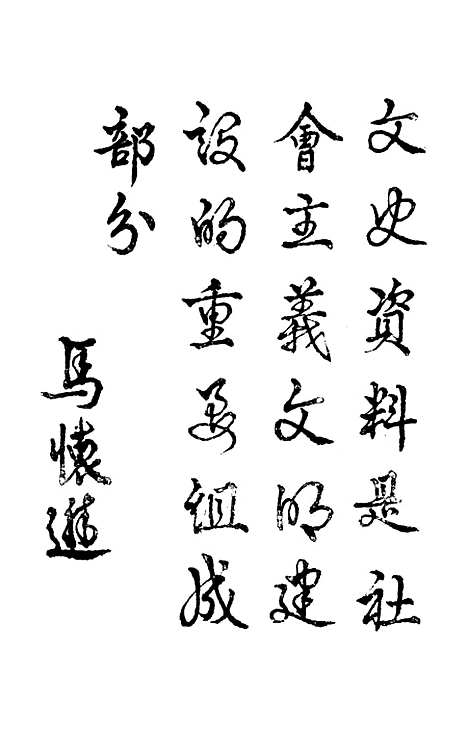 文史資料是社
會主義文明建
設的重要組成
部分
馬懷遊